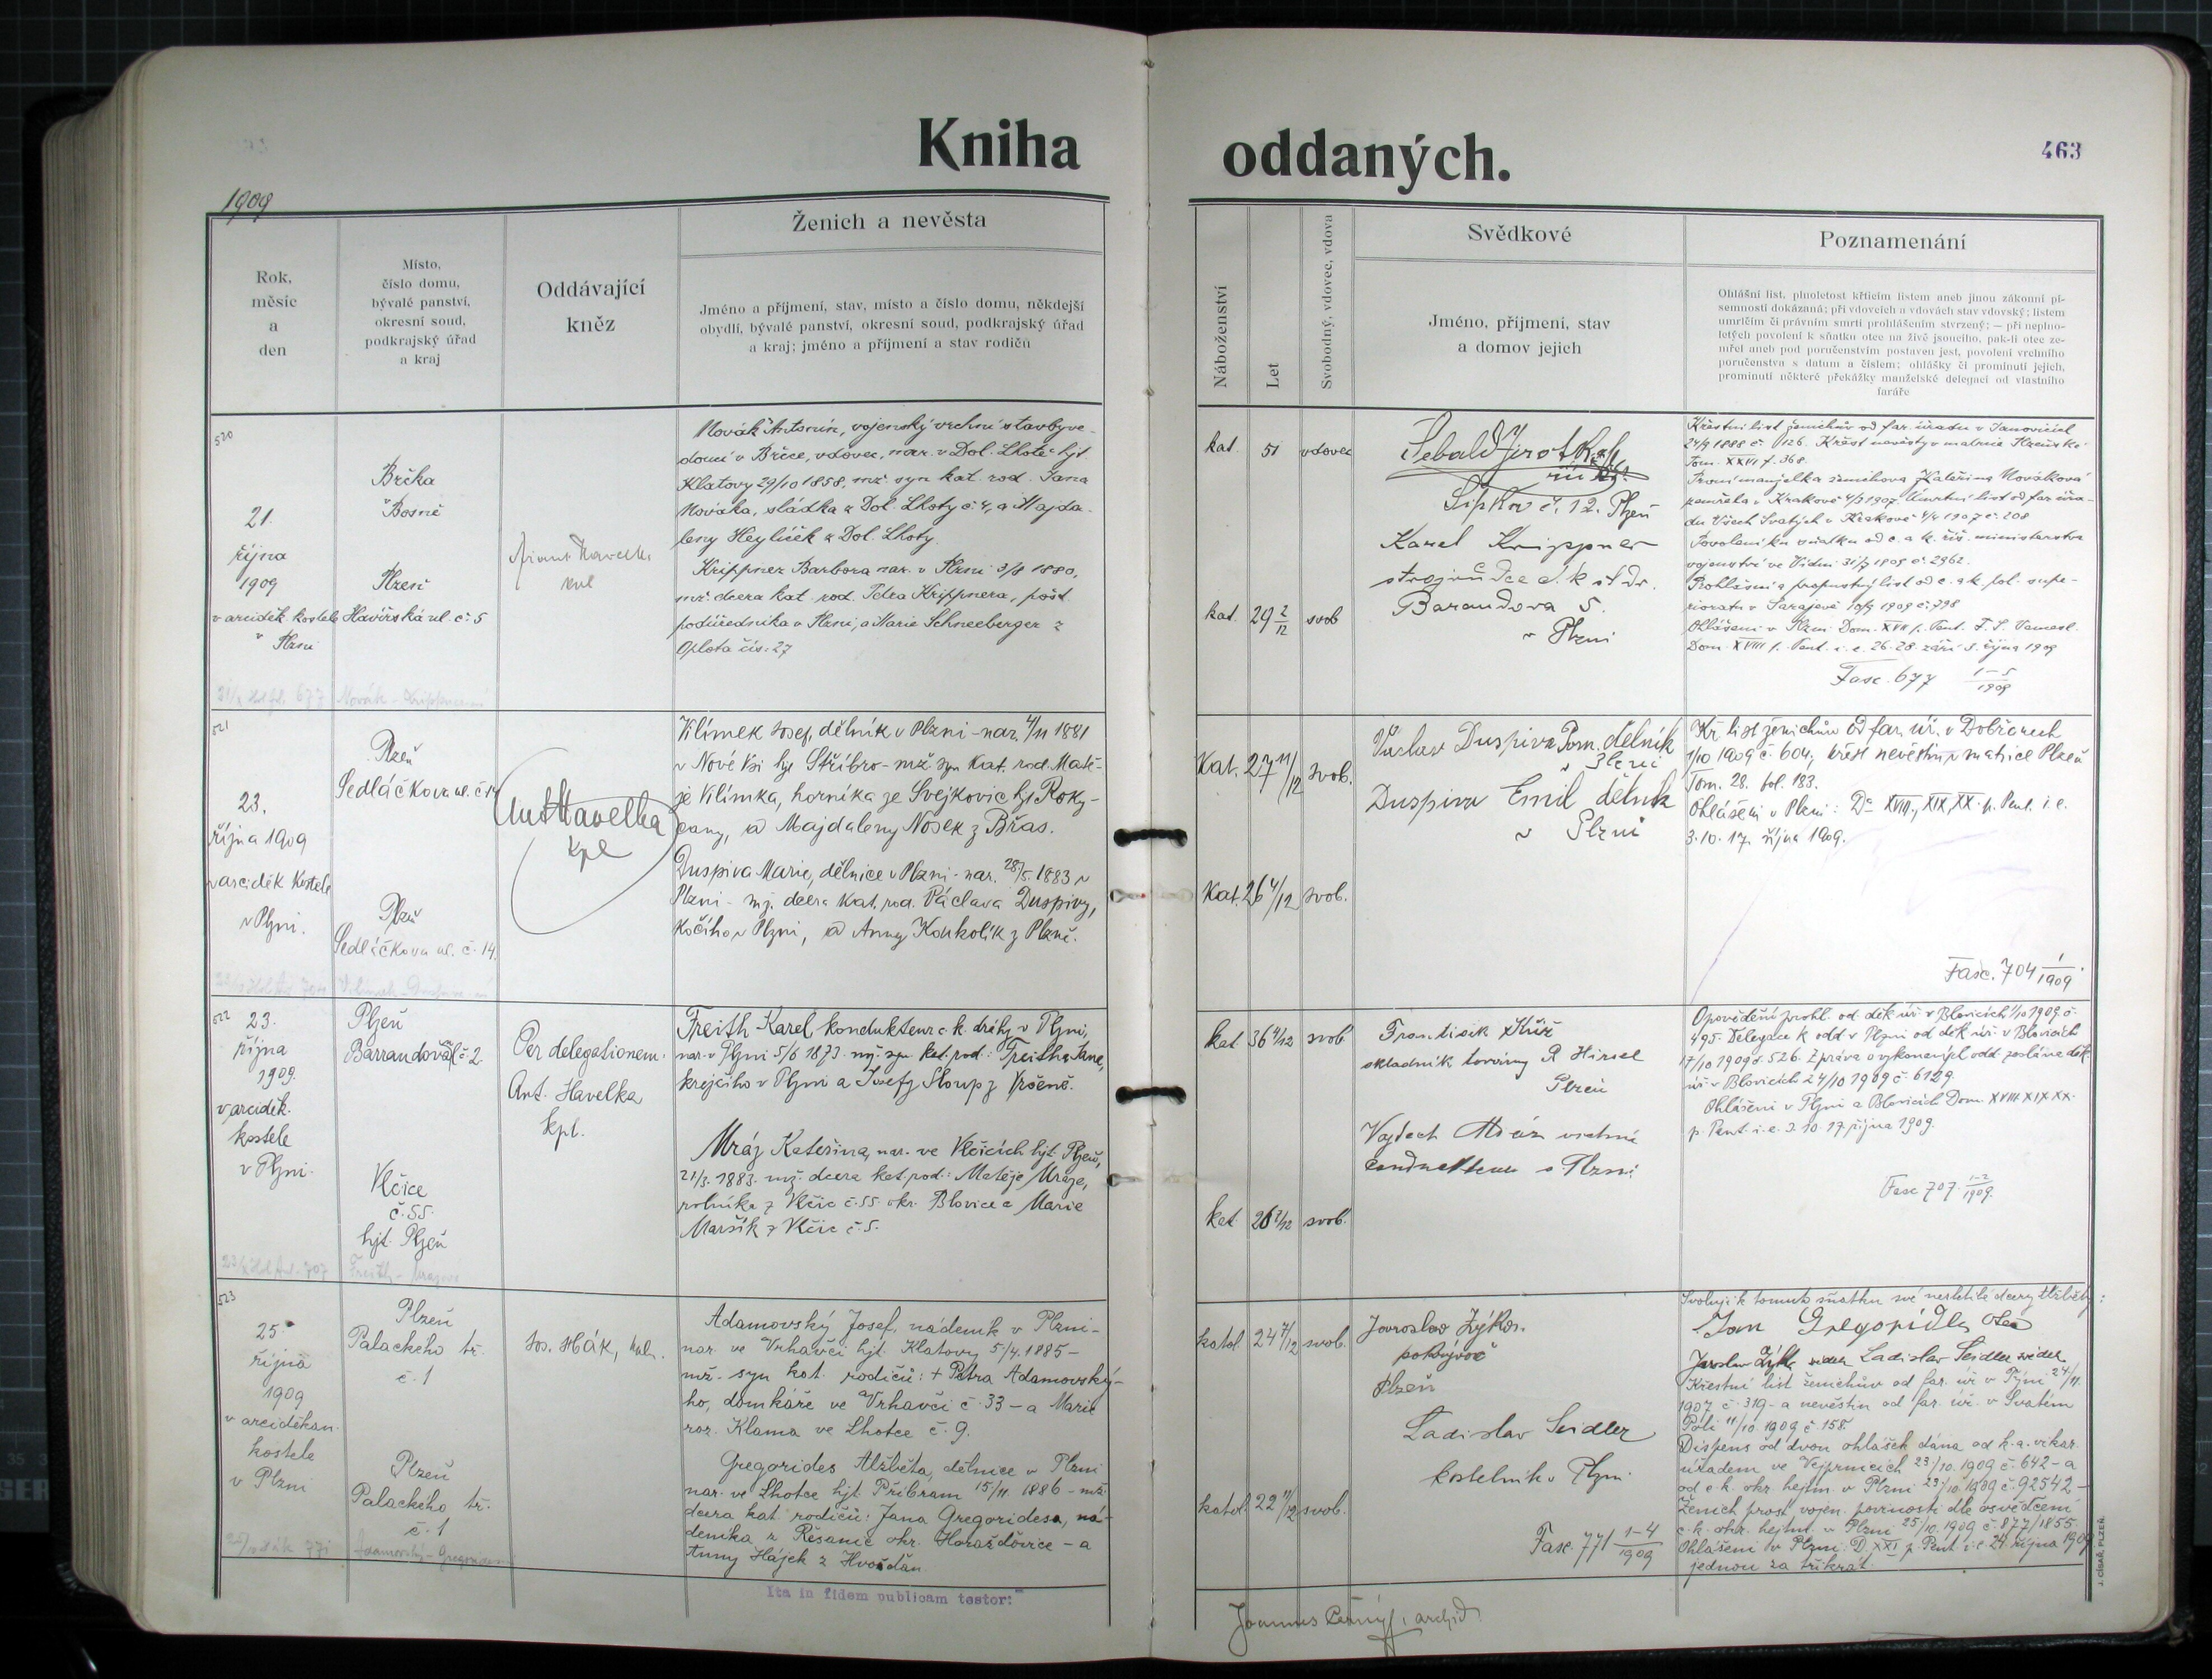 Kniha oddaných.
463
1909
Rok,
měsíc
a
den
Místo,
číslo domu,
bývalé panství,
okresní soud,
podkrajský úřad
a kraj
Oddávající
kněz
Ženich a nevěsta
Jméno a příjmení, stav, místo a číslo domu, někdejší
obydlí, bývalé panství, okresní soud, podkrajský úřad
a kraj; jméno a příjmení a stav rodičů
Náboženství
Let
Svobodný, vdovec, vdova
Svědkové
Jméno, příjmení, stav
a domov jejich
Poznamenání
Ohlášní list, plnoletost křticím listem aneb jinou zákonní pí-
semností dokázaná; při vdovcích a vdovách stav vdovský; listem
umrlčím či právním smrti prohlášením stvrzený; — při neplno-
letých povolení k sňatku otce na živě jsoucího, pak-li otec ze-
mřel aneb pod poručenstvím postaven jest, povolení vrchního
poručenstva s datum a číslem; ohlášky či prominutí jejich,
prominutí některé překážky manželské delegací od vlastního
faráře
520
21.
října
1909
v arciděk. kostele
v Plzni
Brčka
Bosně
Plzeň
Havířská ul. č. 5
kpl
Novák Antonín, vojenský vrchní stavbyve-
doucí v Brčce, vdovec, nar. v Dol. Lhotě hjt
Klatovy 29/10 1858, mž. syn kat. rod. Jana
Nováka, sládka z Dol. Lhoty č. 4, a Majda-
leny Heylíček z Dol. Lhoty.
Krippner Barbora nar. v Plzni 3/8 1880,
mž. dcera kat. rod. Petra Krippnera, pošt.
podúředníka v Plzni, a Marie Schneeberger z
Oplota čís. 27
kat. 51 vdovec
kat. 29 2/12 svob
Sebald Jirotka
Šipkov č. 12. Plzeň
Karel Krippner
strojvůdce c. k. st. dr.
Barandova 5.
v Plzni
Křestní list ženichův od far. úřadu v Janovicích
24/9 1888 č. 126. Křest nevěsty v matrice Plzeňské
Tom. XXVI f. 368.
První manželka ženichova Kateřina Nováková
zemřela v Krakově 4/3 1907. Úmrtní list od far. úřa-
du Všech Svatých v Krakově 4/4 1907 č. 208
Povolení ku sňatku od c. a k. říš. ministerstva
vojenství ve Vídni 31/7 1909 č. 2962.
Prohlášení a propustný list od c. a k. pol. supe-
rioratu v Sarajevě 10/9 1909 č. 798
Ohlášeni v Plzni Dom. XVII p. Pent. F. S. Vencesl.
Dom. XVIII p. Pent. i. e. 26. 28. září 3. října 1909
Fasc. 677 1–5/1909
521
23.
října 1909
v arciděk kostele
v Plzni.
Plzeň
Sedláčkova ul. č. 14
Plzeň
Sedláčkova ul. č. 14.
Ant Havelka
kpl
Klímek Josef, dělník v Plzni – nar. 4/11 1881
v Nové Vsi hjt Stříbro – mž. syn kat. rod. Matě-
je Klímka, horníka ze Svejkovic hjt Roky-
cany, a Majdaleny Nosek z Břas.
Duspiva Marie, dělnice v Plzni – nar. 28/5. 1883 v
Plzni – mž. dcera kat. rod. Václava Duspivy,
kočího v Plzni, a Anny Koukolík z Plzně.
Kat. 27 11/12 svob.
Kat. 26 4/12 svob.
Václav Duspiva Pom. dělník
v Plzni
Duspiva Emil dělník
v Plzni
Kř. list ženichův od far. úř. v Dobřanech
1/10 1909 č. 604; křest nevěstin v matrice Plzeň
Tom. 28. fol. 183.
Ohlášeni v Plzni: Dca XVIII, XIX, XX. p. Pent. i. e.
3. 10. 17. října 1909.
Fasc. 704 1/1909
522
23.
října
1909.
v arciděk.
kostele
v Plzni.
Plzeň
Barrandova ul č. 2.
Vlčice
č. 55.
hjt. Plzeň
Per delegationem.
Ant. Havelka
kpl.
Freith Karel kondukteur c. k. dráhy v Plzni,
nar. v Plzni 5/6 1873. mž. syn kat. rod.: Freitha Jana,
krejčího v Plzni a Josefy Sloup z Vrčeně.
Mráz Kateřina, nar. ve Vlčicích hjt. Plzeň,
21/3. 1883. mž. dcera kat. rod.: Matěje Mráze,
rolníka z Vlčic č. 55. okr. Blovice a Marie
Maršík z Vlčic č. 5.
kat 36 4/12 svob.
kat 26 7/12 svob.
František
skladník továrny R Hirsel
Plzeň
Vojtěch Mráz vrchní
conducteur v Plzni
Opovědění prohl. od děk. úř. v Blovicích 1/10 1909 č.
495. Delegace k odd. v Plzni od děk. úř. v Blovicích
17/10 1909 č. 526. Zpráva o vykonaných odd. zaslána děk.
úř. v Blovicích 24/10 1909 č. 6129.
Ohlášeni v Plzni a Blovicích Dom. XVIII XIX XX.
p. Pent. i. e. 3. 10. 17 října 1909.
Fasc 707. 1–2/1909.
523
25
října
1909
v arciděkan.
kostele
v Plzni
Plzeň
Palackého tř.
č. 1
Plzeň
Palackého tř.
č. 1
Jos. Hák, kpl.
Adamovský Josef, nádeník v Plzni –
nar. ve Vrhavči hjt. Klatovy 5/4. 1885 –
mž. syn kat. rodičů: + Petra Adamovský-
ho, domkáře ve Vrhavči č. 33 – a Marie
roz. Klama ve Lhotce č. 9.
Gregorides Alžběta, dělnice v Plzni
nar. ve Lhotce hjt. Příbram 15/11. 1886 – mž.
dcera kat. rodičů: Jana Gregoridesa, ná-
deníka z Řesanic okr. Horažďovice – a
Anny Hájek z Hvožďan.
katol 24 7/12 svob.
katol 22 11/12 svob.
Jaroslav Zýka.
pokrývač
Plzeň
Ladislav Seidler
kostelník v Plzni.
Fasc. 771 1–4/1909
Svoluji k tomuto sňatku své nezletilé dcery Alžběty:
Jan Gregorides otec
Jaroslav Zýka svědek Ladislav Seidler svědek
Křestní list ženichův od far. úř. v Týni 24/11.
1907 č. 319 – a nevěstin od far. úř. v Svatém
Poli 11/10. 1909 č. 158.
Dispens od dvou ohlášek dána od k. a. vikar.
úřadem ve Vejprnicích 23/10. 1909 č. 642 – a
od c. k. okr. hejtm. v Plzni 23/10. 1909 č. 92542 –
Ženich prost vojen. povinnosti dle osvědčení
c. k. okr. hejtm. v Plzni 25/10. 1909 č. 877/1855.
Ohlášeni v Plzni: D. XXI p. Pent. i. e. 24. října 1909
jednou za třikrát.
Ita in fidem publicam testor:
Joannes Černý, archid.
J. CÍSAŘ, PLZEŇ.